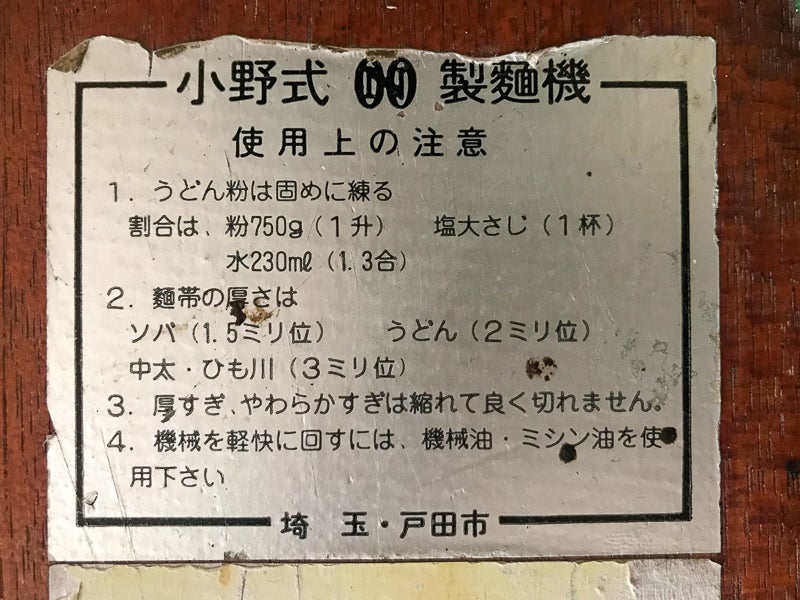 小野式 製麺機
使用上の注意
1. うどん粉は固めに練る
割合は、粉750g(1升) 塩大さじ(1杯)
水230mℓ(1.3合)
2. 麺帯の厚さは
ソバ(1.5ミリ位) うどん(2ミリ位)
中太・ひも川(3ミリ位)
3. 厚すぎ、やわらかすぎは縮れて良く切れません。
4. 機械を軽快に回すには、機械油・ミシン油を使
用下さい
埼 玉・戸田市